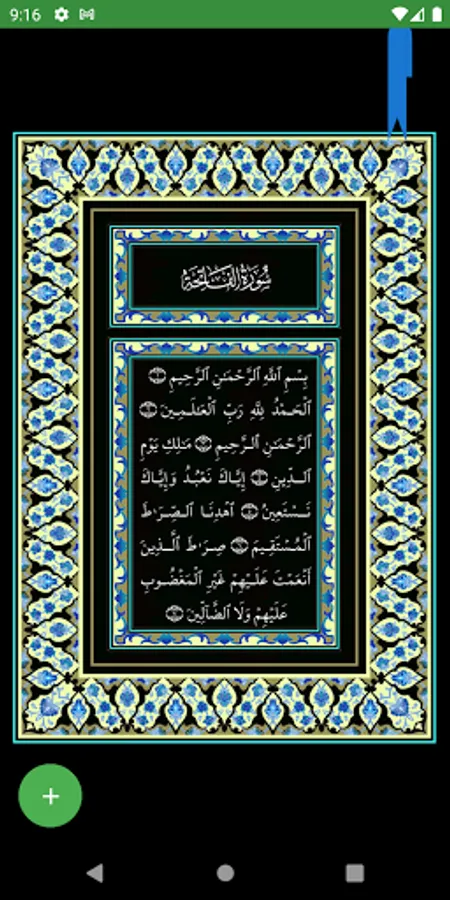 9:16
سُورَةُ الفَاتِحَةِ
بِسْمِ ٱللَّهِ ٱلرَّحْمَٰنِ ٱلرَّحِيمِ
ٱلْحَمْدُ لِلَّهِ رَبِّ ٱلْعَٰلَمِينَ
ٱلرَّحْمَٰنِ ٱلرَّحِيمِ مَٰلِكِ يَوْمِ
ٱلدِّينِ إِيَّاكَ نَعْبُدُ وَإِيَّاكَ
نَسْتَعِينُ ٱهْدِنَا ٱلصِّرَٰطَ
ٱلْمُسْتَقِيمَ صِرَٰطَ ٱلَّذِينَ
أَنْعَمْتَ عَلَيْهِمْ غَيْرِ ٱلْمَغْضُوبِ
عَلَيْهِمْ وَلَا ٱلضَّآلِّينَ
+